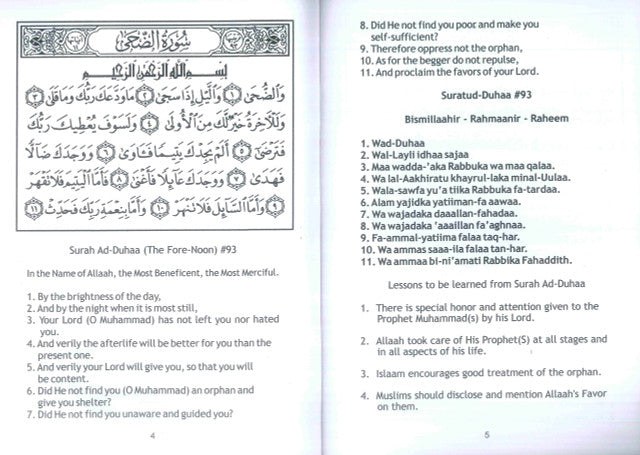 سُورَةُ الضُّحَىٰ
بِسْمِ اللَّهِ الرَّحْمَٰنِ الرَّحِيمِ
وَالضُّحَىٰ ﴿١﴾ وَاللَّيْلِ إِذَا سَجَىٰ ﴿٢﴾ مَا وَدَّعَكَ رَبُّكَ وَمَا قَلَىٰ ﴿٣﴾
وَلَلْآخِرَةُ خَيْرٌ لَكَ مِنَ الْأُولَىٰ ﴿٤﴾ وَلَسَوْفَ يُعْطِيكَ رَبُّكَ
فَتَرْضَىٰ ﴿٥﴾ أَلَمْ يَجِدْكَ يَتِيمًا فَآوَىٰ ﴿٦﴾ وَوَجَدَكَ ضَالًّا
فَهَدَىٰ ﴿٧﴾ وَوَجَدَكَ عَائِلًا فَأَغْنَىٰ ﴿٨﴾ فَأَمَّا الْيَتِيمَ فَلَا تَقْهَرْ
﴿٩﴾ وَأَمَّا السَّائِلَ فَلَا تَنْهَرْ ﴿١٠﴾ وَأَمَّا بِنِعْمَةِ رَبِّكَ فَحَدِّثْ ﴿١١﴾
Surah Ad-Duhaa (The Fore-Noon) #93
In the Name of Allaah, the Most Beneficent, the Most Merciful.
1. By the brightness of the day,
2. And by the night when it is most still,
3. Your Lord (O Muhammad) has not left you nor hated
you.
4. And verily the afterlife will be better for you than the
present one.
5. And verily your Lord will give you, so that you will
be content.
6. Did He not find you (O Muhammad) an orphan and
give you shelter?
7. Did He not find you unaware and guided you?
4
8. Did He not find you poor and make you
self-sufficient?
9. Therefore oppress not the orphan,
10. As for the begger do not repulse,
11. And proclaim the favors of your Lord.
Suratud-Duhaa #93
Bismillaahir - Rahmaanir - Raheem
1. Wad-Duhaa
2. Wal-Layli idhaa sajaa
3. Maa wadda-'aka Rabbuka wa maa qalaa.
4. Wa lal-Aakhiratu khayrul-laka minal-Uulaa.
5. Wala-sawfa yu'a tiika Rabbuka fa-tardaa.
6. Alam yajidka yatiiman-fa aawaa.
7. Wa wajadaka daaallan-fahadaa.
8. Wa wajadaka 'aaaillan fa'aghnaa.
9. Fa-ammal-yatiima falaa taq-har.
10. Wa ammas saaa-ila falaa tan-har.
11. Wa ammaa bi-ni'amati Rabbika Fahaddith.
Lessons to be learned from Surah Ad-Duhaa
1. There is special honor and attention given to the
Prophet Muhammad(s) by his Lord.
2. Allaah took care of His Prophet(S) at all stages and
in all aspects of his life.
3. Islaam encourages good treatment of the orphan.
4. Muslims should disclose and mention Allaah's Favor
on them.
5